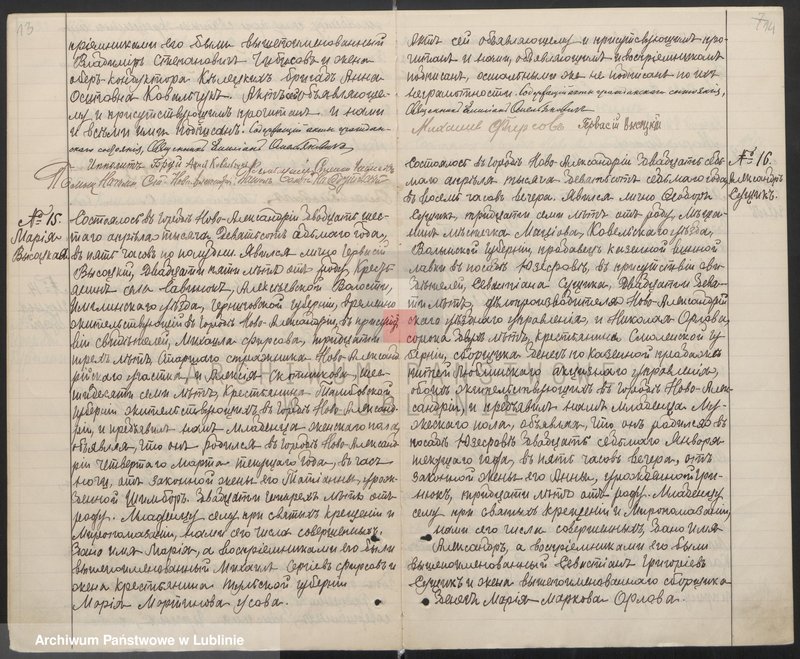 13
пріемниками его были вышепоименованный
Владиміръ Степановичъ и жена
оберъ-кондуктора бригадъ Анна
Осиповна Ковальчукъ. Актъ объявляюще-
му и присутствующимъ прочитанъ и нами
и всѣми ими подписанъ. Содержащій акты граждан-
скаго состоянія, Священникъ
№ 15.
Марія
Высоцкая.
Состоялось въ городѣ Ново-Александріи двадцать шес-
таго апрѣля тысяча девятьсотъ седьмаго года,
въ пять часовъ по полудни. Явился лично Гервасій
Высоцкій, двадцати пяти лѣтъ отъ роду, кресть-
янинъ села Савинокъ, Алексѣевской Волости,
уѣзда, Черниговской губерніи, временно
жительствующій въ городѣ Ново-Александріи, въ присутст-
віи свидѣтелей, Михаила Фирсова, тридцати
трехъ лѣтъ, Старшаго стражника Ново-Александ-
рійскаго участка и Алексія Скотникова, шес-
тидесяти семи лѣтъ, крестьянина Тамбовской
губерніи жительствующихъ въ городѣ Ново-Александ-
ріи, и предъявилъ намъ младенца женскаго пола,
объявляя, что онъ родился въ городѣ Ново-Александ-
ріи четвертаго Марта текущаго года, въ часъ
ночи, отъ законной жены его Татіанны, урож-
денной двадцати четырехъ лѣтъ отъ
роду. Младенцу сему при святыхъ крещеніи и
Миропомазаніи, нами сего числа совершенныхъ,
дано имя Марія, а воспріемниками его были
вышепоименованный Михаилъ Сергіевъ Фирсовъ и
жена крестьянина Тульской губерніи
Марія Мартинова Усова.
14
Актъ сей объявляющему и присутствующимъ про-
читанъ и нами, объявляющимъ и воспріемникомъ
подписанъ, остальными же не подписанъ по ихъ
неграмотности. Содержащій акты гражданскаго состоянія,
Священникъ
Михаилъ Фирсовъ Гервасій Высоцкій
№ 16.
Александръ
Сущикъ.
Состоялось въ городѣ Ново-Александріи двадцать седь-
маго апрѣля тысяча девятьсотъ седьмаго года
въ восемь часовъ вечера. Явился лично Ѳеодоръ
Сущикъ, тридцати семи лѣтъ отъ роду, мѣща-
нинъ мѣстечка Маціова, Ковельскаго уѣзда,
Волынской губерніи, продавецъ казенной винной
лавки въ посадѣ Юзефовъ, въ присутствіи сви-
дѣтелей, Севастіана Сущика, двадцати девя-
ти лѣтъ, дѣлопроизводителя Ново-Александрій-
скаго уѣзднаго управленія, и Николая Орлова,
сорока двухъ лѣтъ, крестьянина Смоленской гу-
берніи, сборщика денегъ по казенной продажѣ
питей Люблинскаго акцизнаго управленія,
обоихъ жительствующихъ въ городѣ Ново-Алек-
сандріи, и предъявилъ намъ младенца му-
жескаго пола, объявляя, что онъ родился въ
посадѣ Юзефовъ двадцать седьмаго Января
текущаго года, въ пять часовъ вечера, отъ
законной жены его Анны, урожденной Гри-
нюкъ, тридцати лѣтъ отъ роду. Младенцу
сему при святыхъ крещеніи и Миропомазаніи,
нами сего числа совершенныхъ, дано имя
Александръ, а воспріемниками его были
вышепоименованный Севастіанъ Григоріевъ
Сущикъ и жена вышепоименованнаго сборщика
денегъ Марія Маркова Орлова.
Archiwum Państwowe w Lublinie